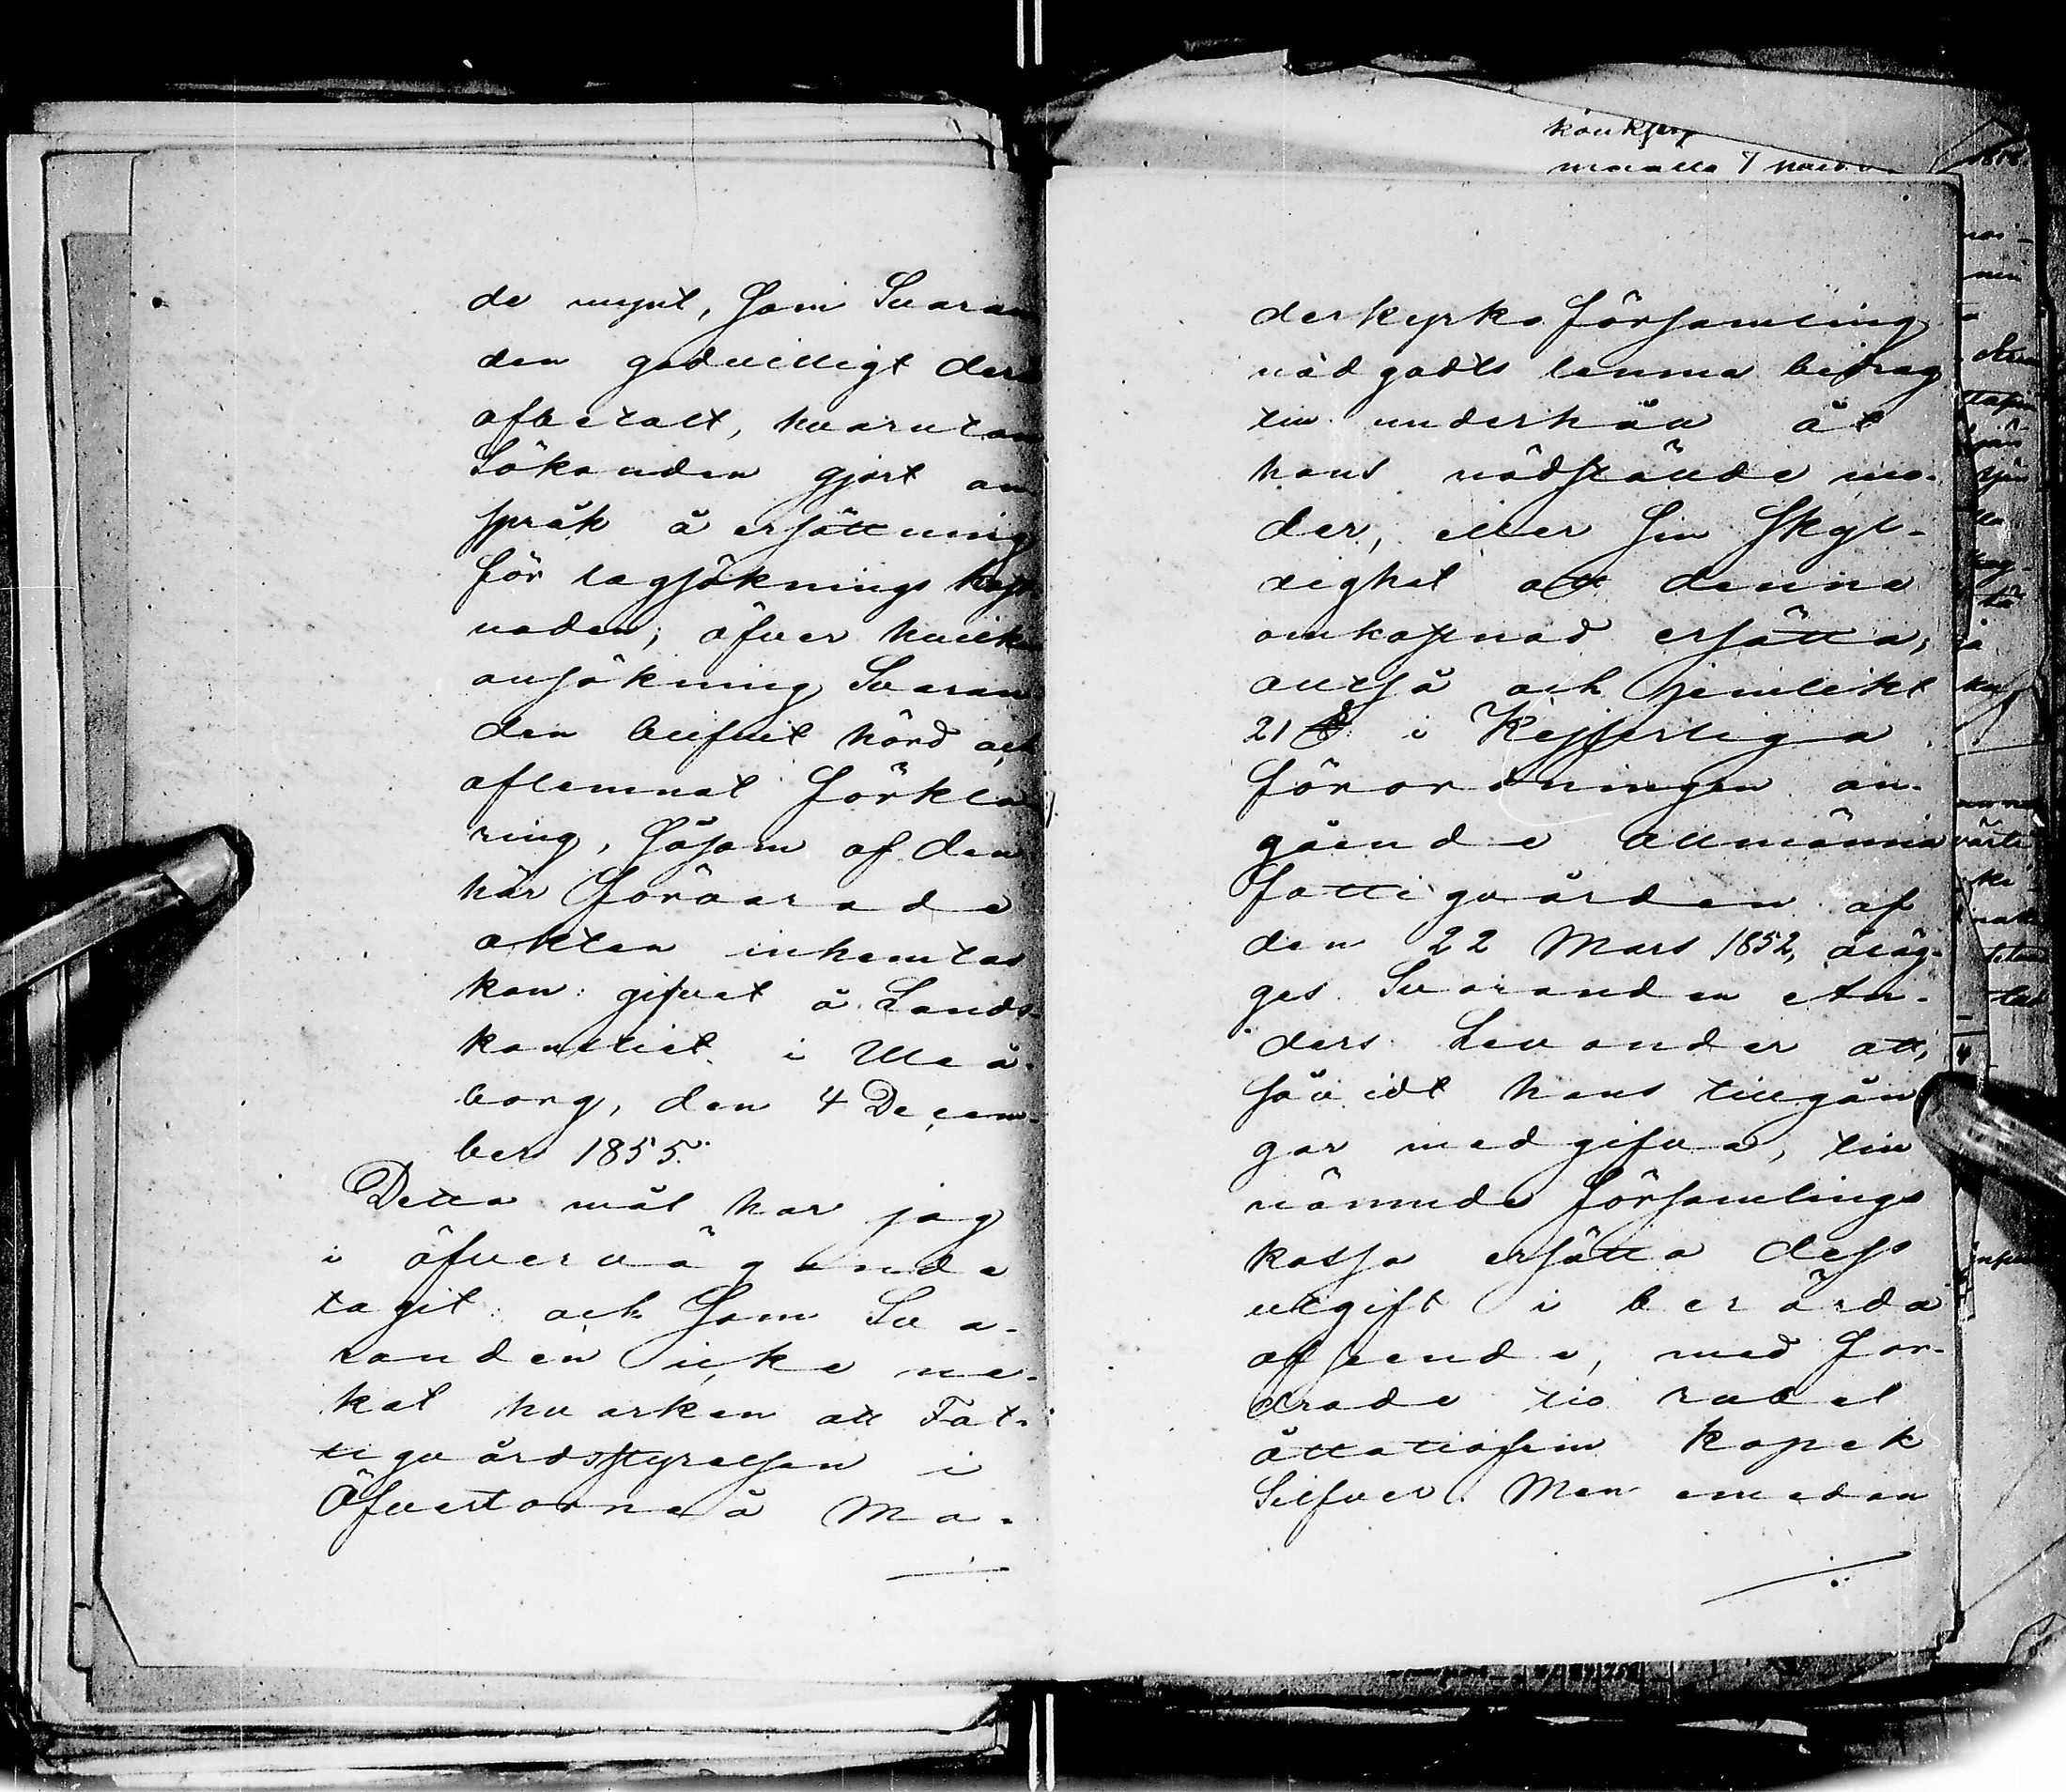 de mynt, som Svaran
den godvilligt der
afbetalt, hvarutan
Sökanden gjort an
språk å ersättning
för lagsöknings kost
naden; öfver hvilk
ansökning Svaran
den blifvit hörd och
aflemnat förkla
ring, såsom af den
här förvarade
akten inhemtas
kan: gifvet å Lands-
kansliet i Uleå-
borg, den 4 Decem-
ber 1855.
Detta mål har jag
i öfvervägande
tagit: och som Sva-
randen icke ne-
kat hvarken att Fat-
tigvårdsstyrelsen i
Öfvertorneå Mo-
derkyrko församling
nödgadts lemna bidrag
till underhåll åt
hans nödstände mo-
der, eller sin skyl-
dighet att denna
omkostnad ersätta,
altså och jemlikt
21 §. i Kejserliga
förordningen an-
gående allmänna
fattigvården af
den 22 Mars 1852, åläg-
ges Svaranden An-
ders Levander att,
såvidt hans tillgån
gar medgifva, till
nämnde församlings
kassa ersätta dess
utgift i berörda
afseende, med for-
drade tio rubel
åttatiofem kopek
Silfver. Men emedan